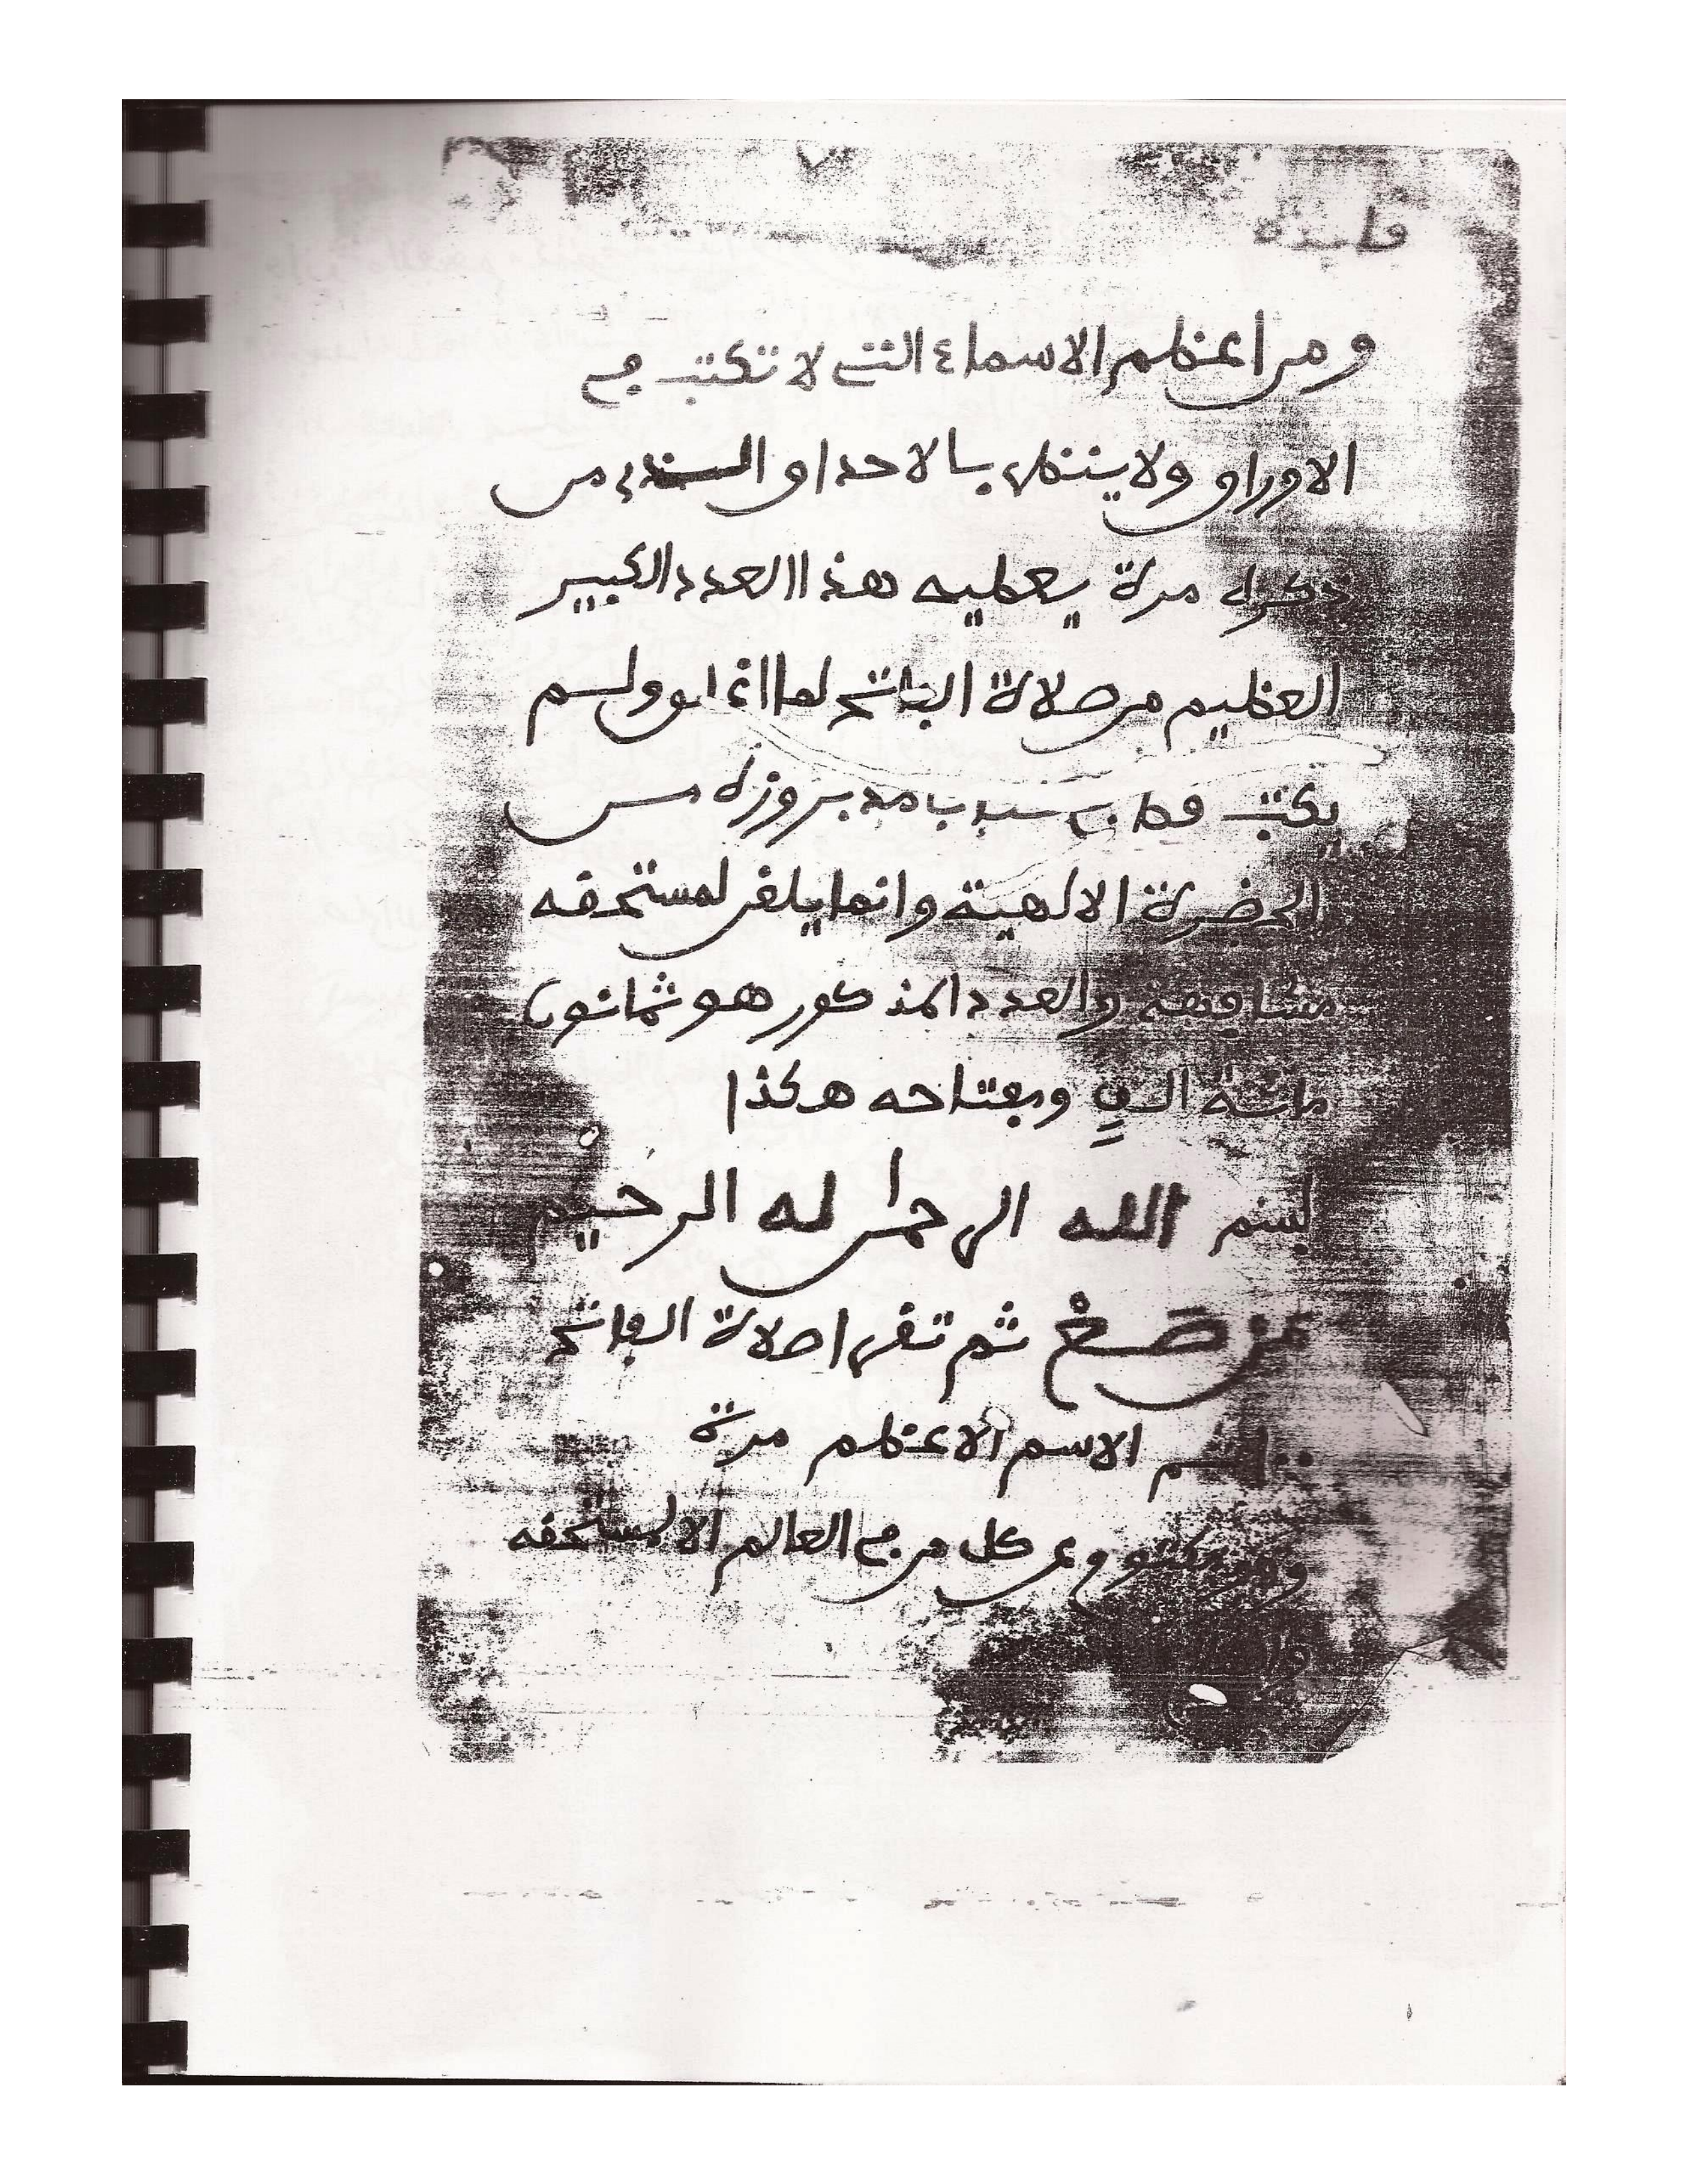 فايدة
ومن اعظم الاسماء التى لا تكتب في
الاوراق ولا ينتظر بالاحداق من
ذكره مرة يعطيه هذا العدد الكبير
العظيم من صلاة الفاتح لما اغلق ولم
يكتب قط بروزه من
الحضرة الالهية وانما يلقى لمستحقه
مشافهة والعدد المذكور هو ثمانون
مائة الف ومفتاحه هكذا
بسم الله الرحمن له الرحيم
ثم تقرا صلاة الفاتح
الاسم الاعظم مرة
وهو مكتوم عن كل من في العالم الا لمستحقه